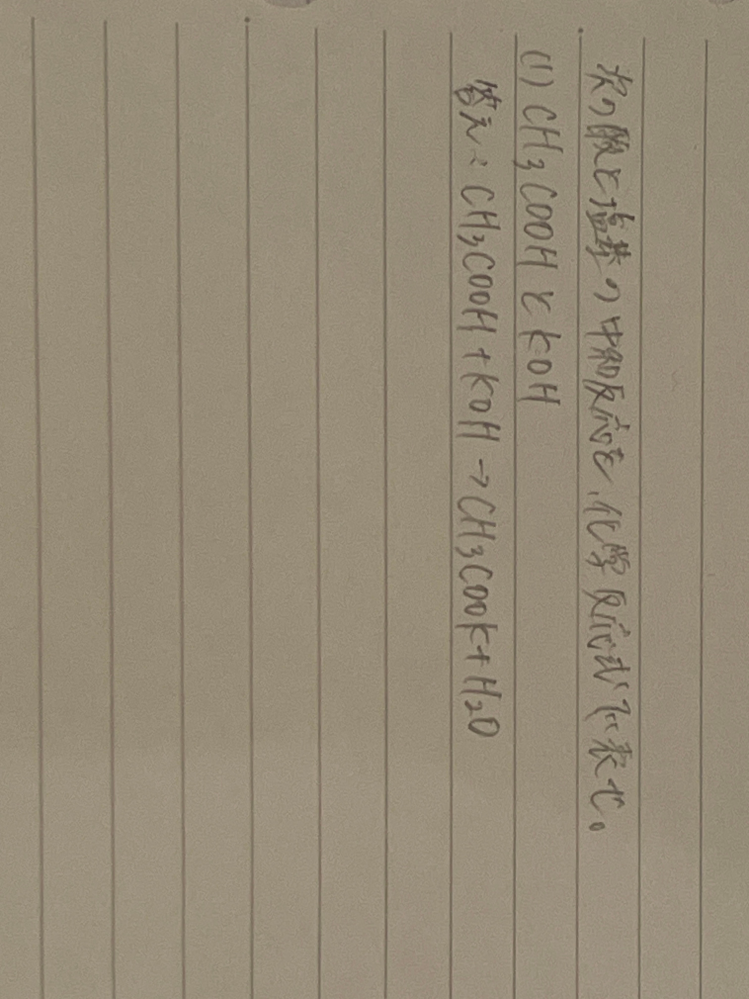 次の酸と塩基の中和反応を、化学反応式で表せ。
(1) CH₃COOHとKOH
答え：CH₃COOH+KOH→CH₃COOK+H₂O